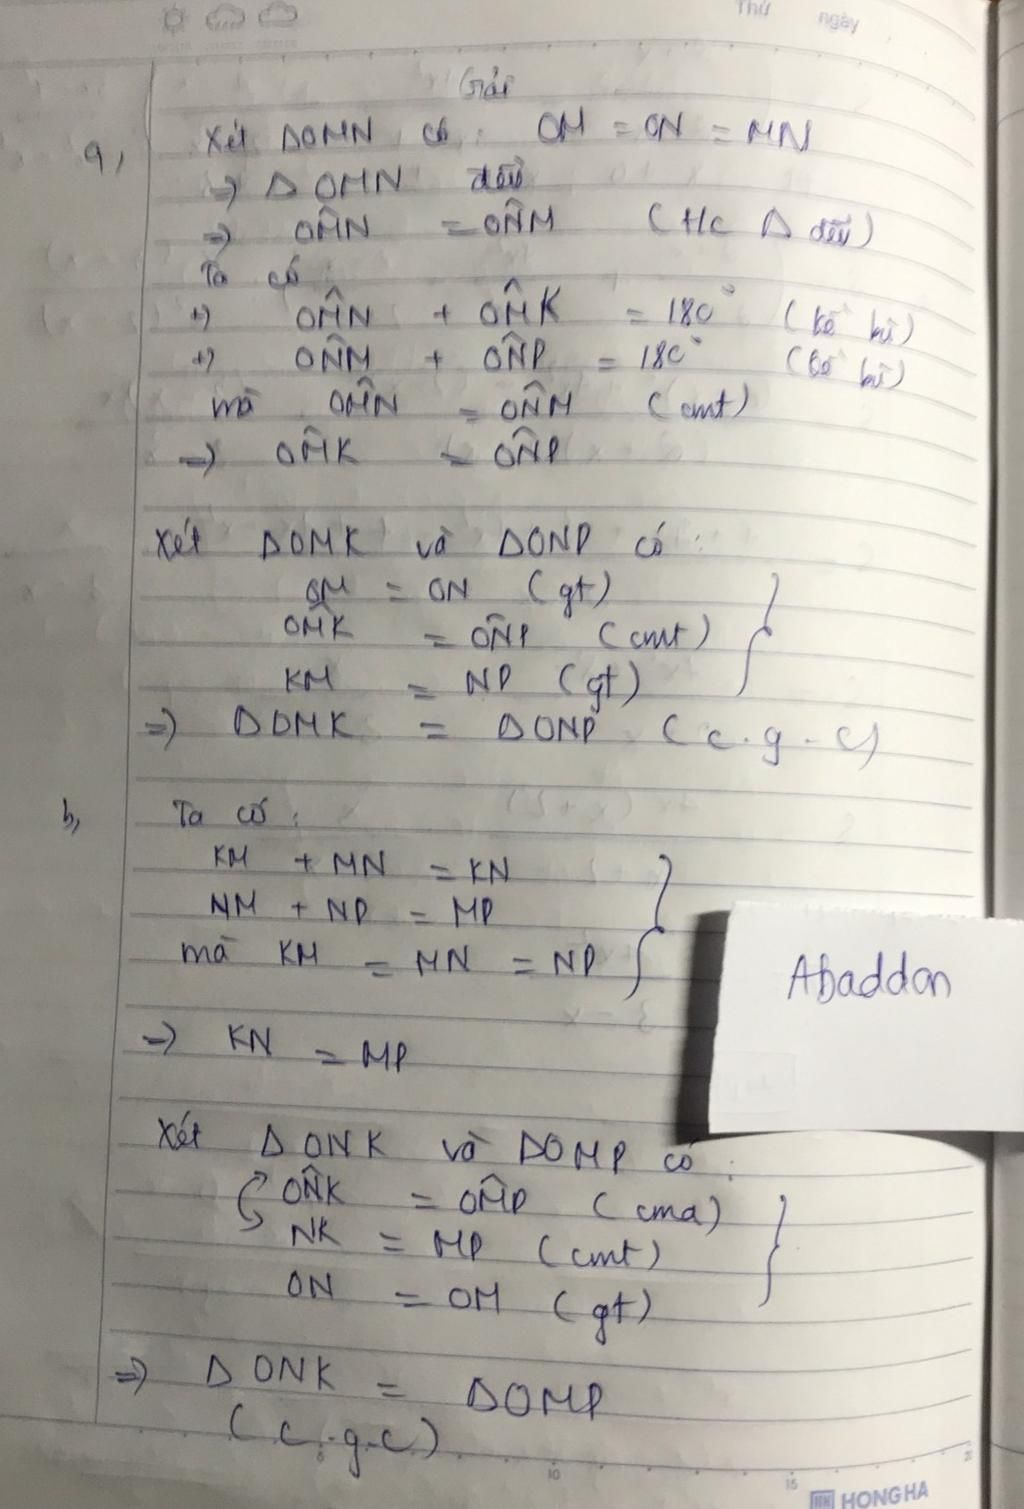 Thứ ngày
Giải
a, Xét ΔOMN có: OM = ON = MN
=> ΔOMN đều
=> OM̂N = ON̂M (t/c Δ đều)
Ta có:
+) OM̂N + OM̂K = 180° (kề bù)
+) ON̂M + ON̂P = 180° (kề bù)
mà OM̂N = ON̂M (cmt)
=> OM̂K = ON̂P
Xét ΔOMK và ΔONP có:
OM = ON (gt)
OM̂K = ON̂P (cmt)
KM = NP (gt)
=> ΔOMK = ΔONP (c.g.c)
b, Ta có:
KM + MN = KN
NM + NP = MP
mà KM = MN = NP
=> KN = MP
Abaddon
Xét ΔONK và ΔOMP có:
ON̂K = OM̂P (cma)
NK = MP (cmt)
ON = OM (gt)
=> ΔONK = ΔOMP
(c.g.c)
10 15
HONG HA